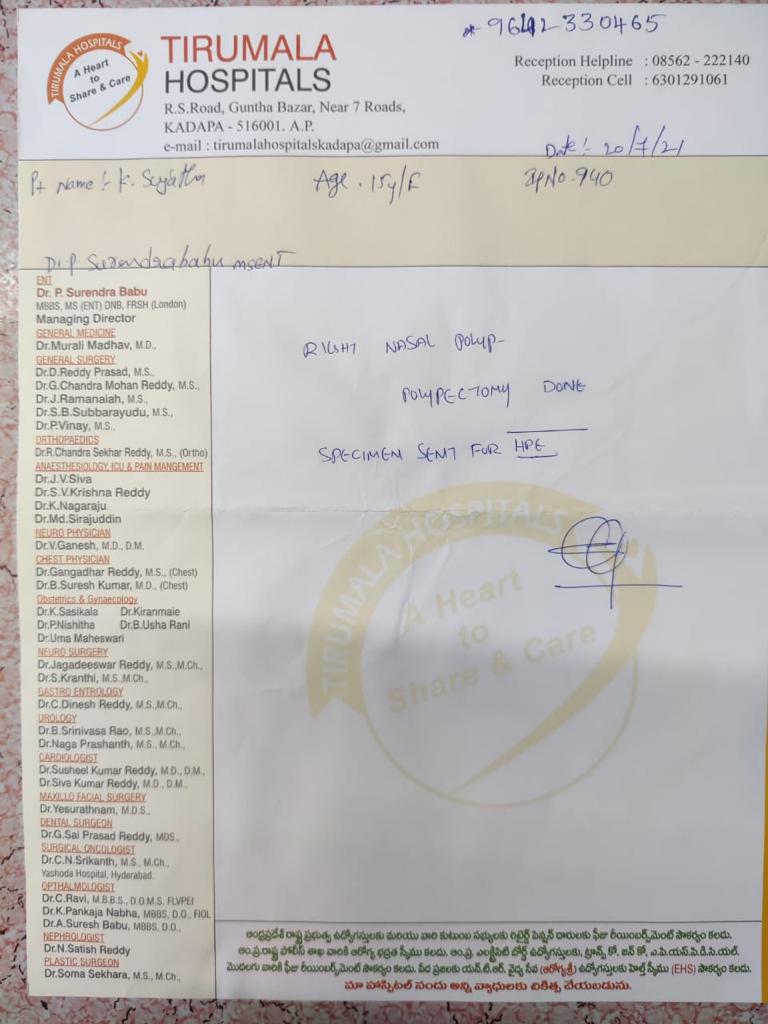 * 9642330465
TIRUMALA HOSPITALS
A Heart
to
Share & Care
TIRUMALA
HOSPITALS
R.S.Road, Guntha Bazar, Near 7 Roads,
KADAPA - 516001. A.P.
e-mail : tirumalahospitalskadapa@gmail.com
Reception Helpline : 08562 - 222140
Reception Cell : 6301291061
Date :- 20/7/21
Pt Name :- K. Sujatha Age . 15y/F IpNo. 940
Dr.P. Surendrababu MSENT
ENT
Dr. P. Surendra Babu
MBBS, MS (ENT) DNB, FRSH (London)
Managing Director
GENERAL MEDICINE
Dr.Murali Madhav, M.D.,
GENERAL SURGERY
Dr.D.Reddy Prasad, M.S.,
Dr.G.Chandra Mohan Reddy, M.S.,
Dr.J.Ramanaiah, M.S.,
Dr.S.B.Subbarayudu, M.S.,
Dr.P.Vinay, M.S.,
ORTHOPAEDICS
Dr.R.Chandra Sekhar Reddy, M.S., (Ortho)
ANAESTHESIOLOGY, ICU & PAIN MANGEMENT
Dr.J.V.Siva
Dr.S.V.Krishna Reddy
Dr.K.Nagaraju
Dr.Md.Sirajuddin
NEURO PHYSICIAN
Dr.V.Ganesh, M.D., D.M.
CHEST PHYSICIAN
Dr.Gangadhar Reddy, M.S., (Chest)
Dr.B.Suresh Kumar, M.D., (Chest)
Obstetrics & Gynaecology
Dr.K.Sasikala Dr.Kiranmaie
Dr.P.Nishitha Dr.B.Usha Rani
Dr.Uma Maheswari
NEURO SURGERY
Dr.Jagadeeswar Reddy, M.S.,M.Ch.,
Dr.S.Kranthi, M.S.,M.Ch.,
GASTRO ENTROLOGY
Dr.C.Dinesh Reddy, M.S.,M.Ch.,
UROLOGY
Dr.B.Srinivasa Rao, M.S.,M.Ch.,
Dr.Naga Prashanth, M.S., M.Ch.,
CARDIOLOGIST
Dr.Susheel Kumar Reddy, M.D., D.M.,
Dr.Siva Kumar Reddy, M.D., D.M.,
MAXILLO FACIAL SURGERY
Dr.Yesurathnam, M.D.S.,
DENTAL SURGEON
Dr.G.Sai Prasad Reddy, MDS.,
SURGICAL ONCOLOGIST
Dr.C.N.Srikanth, M.S., M.Ch.,
Yashoda Hospital, Hyderabad.
OPTHALMOLOGIST
Dr.C.Ravi, M.B.B.S., D.O.M.S. FLVPEI
Dr.K.Pankaja Nabha, MBBS, D.O., FIOL
Dr.A.Suresh Babu, MBBS, D.O.,
NEPHROLOGIST
Dr.N.Satish Reddy
PLASTIC SURGEON
Dr.Soma Sekhara, M.S., M.Ch.,
RIGHT NASAL POLYP-
POLYPECTOMY DONE
SPECIMEN SENT FOR HPE
TIRUMALA HOSPITALS
A Heart
to
Share & Care
ఆంధ్రప్రదేశ్ రాష్ట్ర ప్రభుత్వ ఉద్యోగస్తులకు మరియు వారి కుటుంబ సభ్యులకు రిటైర్డ్ పెన్షన్ దారులకు ఫీజు రీయింబర్స్‌మెంట్ సౌకర్యం కలదు.
ఆం.ప్ర.రాష్ట్ర పోలీస్ శాఖ వారికి ఆరోగ్య భద్రత స్కీము కలదు. ఆం.ప్ర. ఎలక్ట్రిసిటి బోర్డ్ ఉద్యోగస్తులకు, ట్రాన్స్ కో, జన్ కో, ఎ.పి.యస్.పి.డి.సి.యల్.
మొదలగు వారికి ఫీజు రీయింబర్స్‌మెంట్ సౌకర్యం కలదు. పేద ప్రజలకు యన్.టి.ఆర్. వైద్య సేవ (ఆరోగ్యశ్రీ) ఉద్యోగస్తులకు హెల్త్ స్కీము (EHS) సౌకర్యం కలదు.
మా హాస్పిటల్ నందు అన్ని వ్యాధులకు చికిత్స చేయబడును.